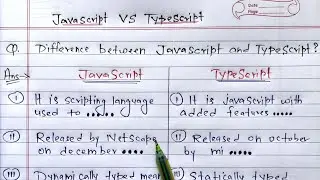 Date
Page
JavaScript VS TypeScript
Q. Difference between JavaScript and TypeScript?
Ans→ JavaScript TypeScript
i It is scripting language used to ..... i It is JavaScript with added features .....
ii Released by NetScape on december .... ii Released on october by mi .....
iii Dynamically typed mean iii Statically typed